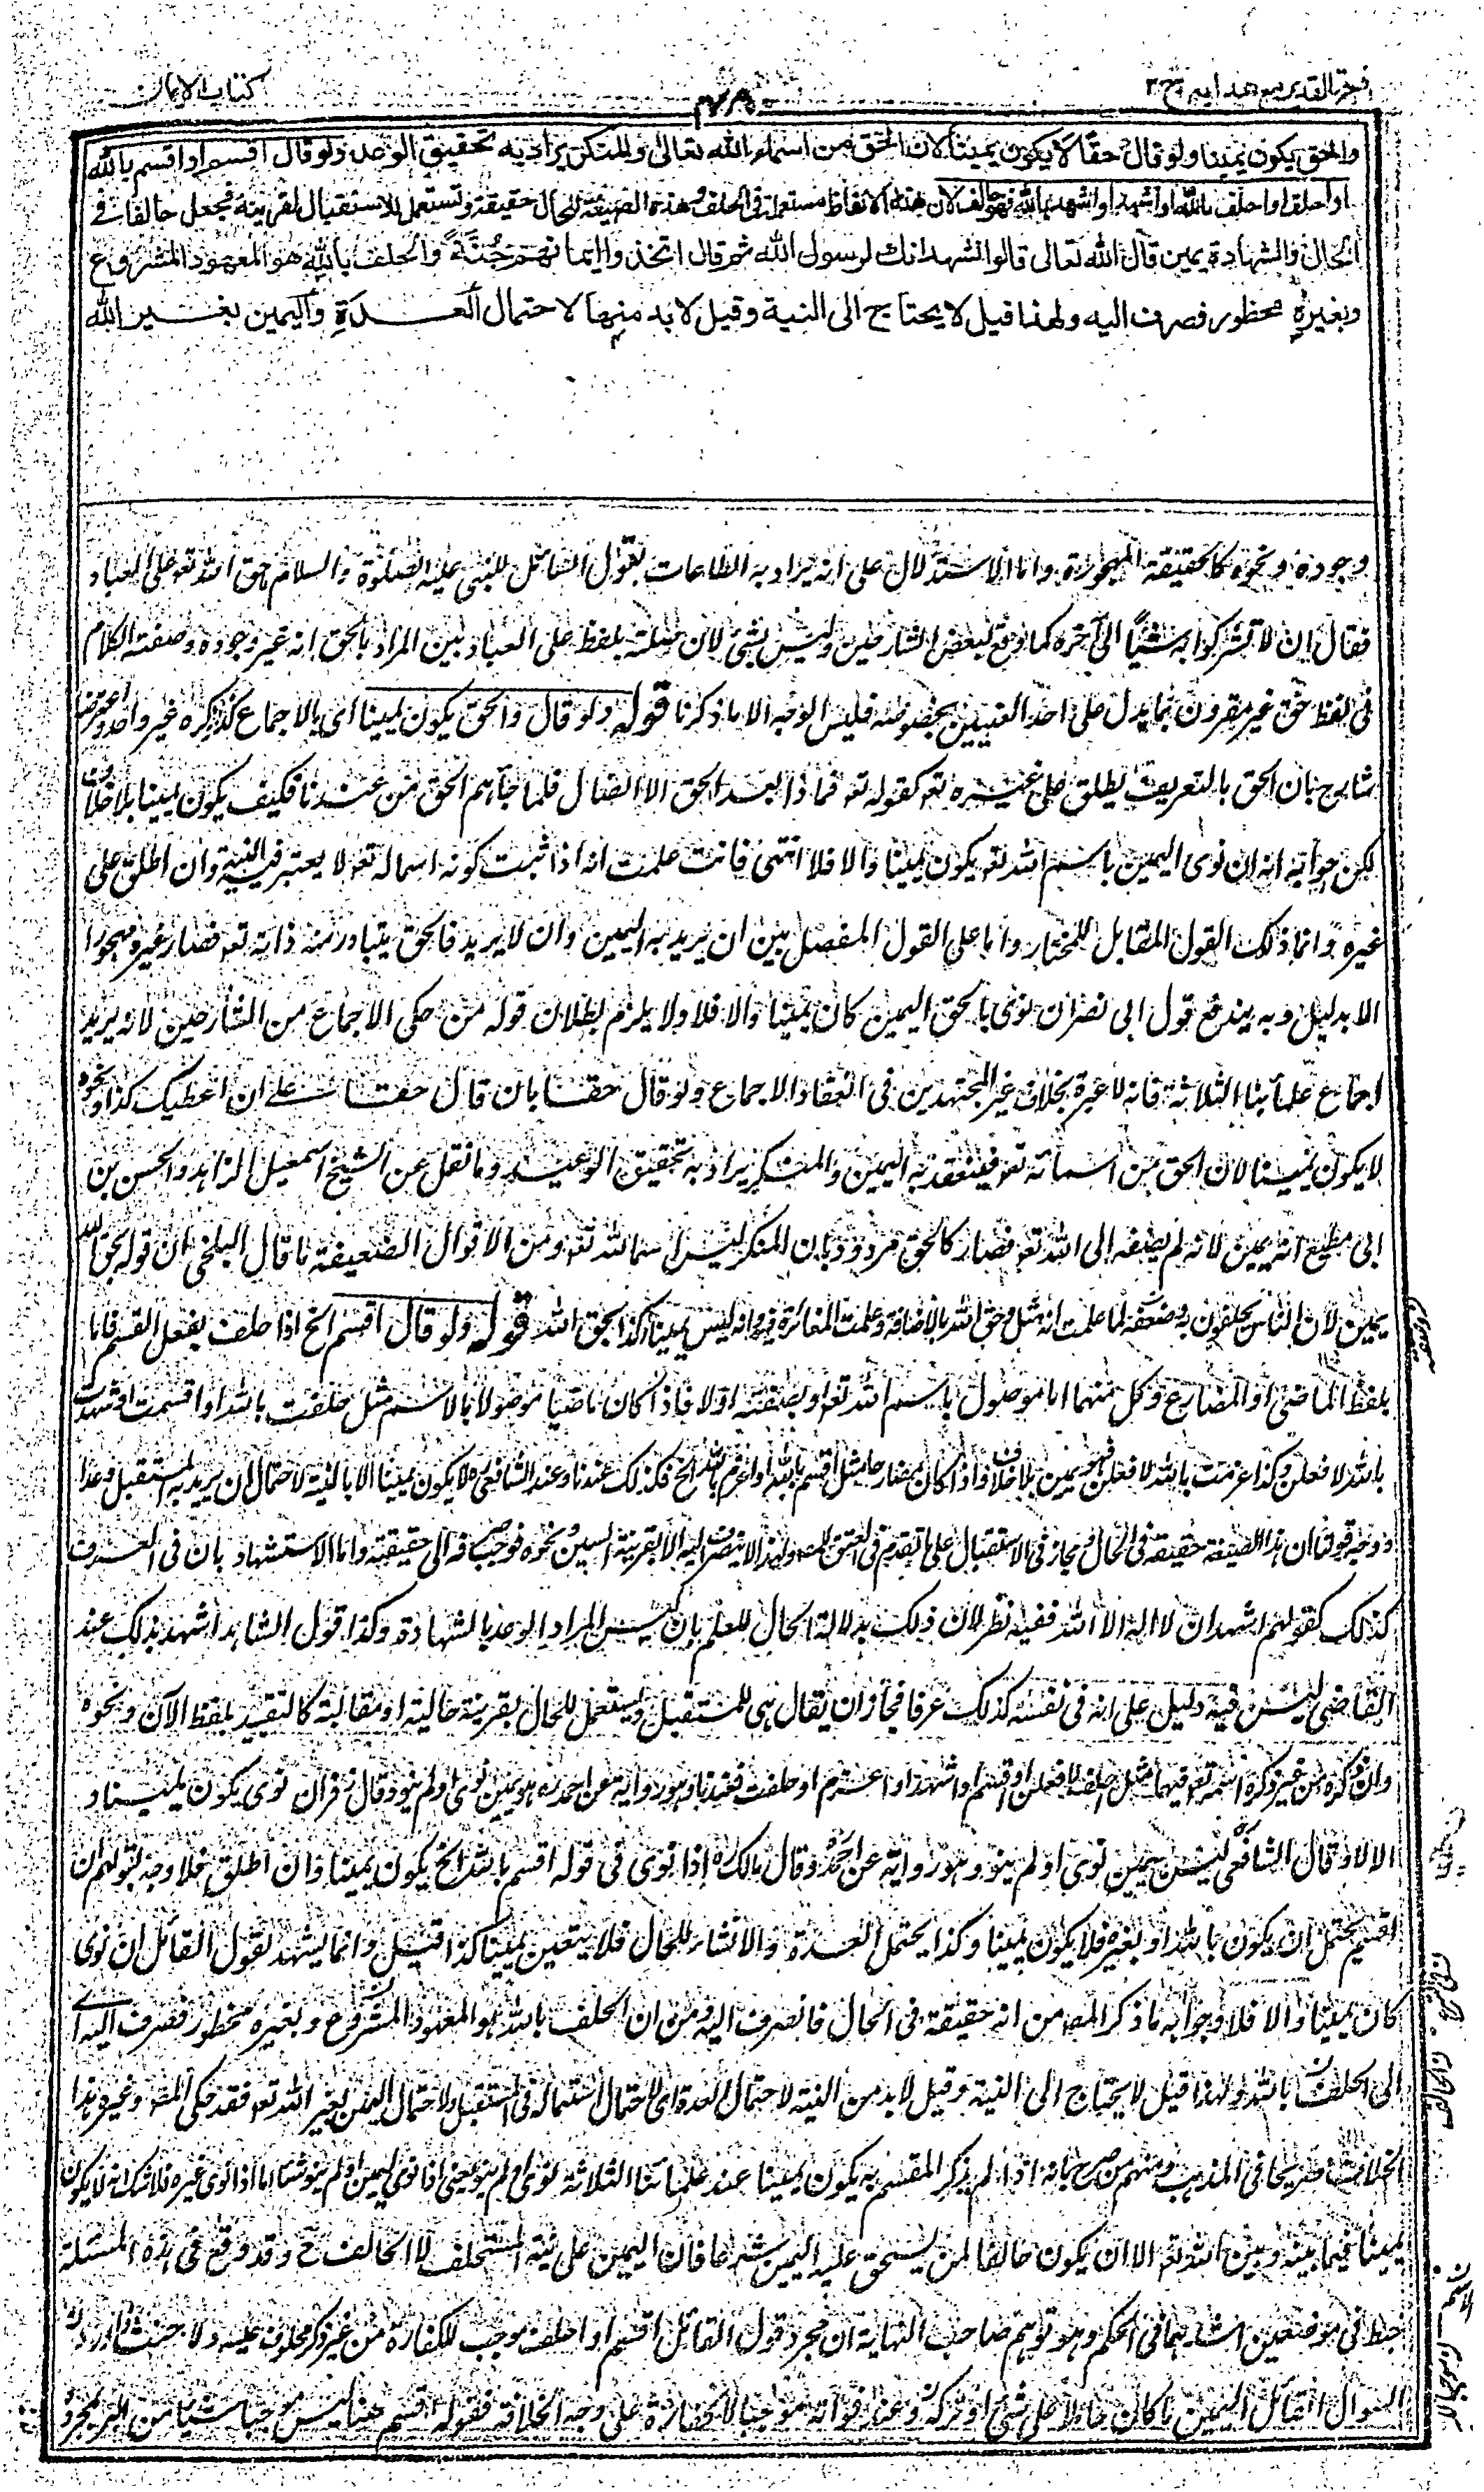 فتح القدير مع هدايه ج ٢
كتاب الايمان
والحق يكون يمينا ولو قال حقا لا يكون يمينا لان الحق من اسماء الله تعالى والمنكر يراد به تحقيق الوعد ولو قال اقسم او اقسم بالله
او احلف او احلف بالله او اشهد او اشهد بالله فهو حالف لان هذه الالفاظ مستعملة فى الحلف وهذه الصيغة للحال حقيقة وتستعمل للاستقبال لقرينة فجعل حالفا فى
الحال والشهادة يمين قال الله تعالى قالوا نشهد انك لرسول الله ثم قال اتخذوا ايمانهم جنة والحلف بالله هو المعهود المشروع
وبغيره محظور فصرف اليه ولهذا قيل لا يحتاج الى النية وقيل لا بد منها لاحتمال العدة واليمين بغير الله
وجوده ونحوه كالحقيقة المهجورة واما الاستدلال على انه يراد به الطاعات بقول السائل للنبى عليه الصلوة والسلام ما حق الله تعو على العباد
فقال ان لا تشركوا به شيئا الى آخره كما وقع لبعض الشارحين وليس بشئ لان صلته بلفظ على العباد بين المراد بالحق انه غير وجوده وصفته الكلام
فى لفظ حق غير مقرون بما يدل على احد المعنيين بخصوصه فليس الوجه الا ما ذكرنا قوله ولو قال والحق يكون يمينا اى بالاجماع كذا ذكره غير واحد واعترضه
شارح بان الحق بالتعريف يطلق على غيره تعو كقوله تعو فماذا بعد الحق الا الضلال فلما جآءهم الحق من عندنا فكيف يكون يمينا بلا خلاف
لكن جوابه انه ان نوى اليمين باسم الله تعو يكون يمينا والا فلا انتهى فانت علمت انه اذا ثبت كونه اسما له تعو لا يعتبر فيه النية وان اطلق على
غيره وانما ذلك القول المقابل للمختار واما على القول المفصل بين ان يريد به اليمين وان لا يريد فالحق يتبادر منه ذاته تعو فصار غيره مهجورا
الا بدليل وبه يندفع قول ابى نصر ان نوى بالحق اليمين كان يمينا والا فلا ولا يلزم بطلان قوله من حكى الاجماع من الشارحين لانه يريد
اجماع علمائنا الثلاثة فانه لا عبرة بخلاف غير المجتهدين فى انعقاد الاجماع ولو قال حقا بان قال حقا على ان اعطيك كذا ونحوه
لا يكون يمينا لان الحق من اسمائه تعو فينعقد به اليمين والمنكر يراد به تحقيق الوعيد وما نقل عن الشيخ اسمعيل الزاهد والحسن بن
ابى مطيع انه يمين لانه لم يضفه الى الله تعو فصار كالحق مردود بان المنكر ليس اسما لله تعو ومن الاقوال الضعيفة ما قال البلخى ان قوله بحق الله
يمين لان الناس يحلفون به وضعفه لما علمت انه مثل وحق الله بالاضافة وعلمت المغائرة فيه وانه ليس يمينا كذا بحق الله قوله ولو قال اقسم الخ اذا حلف بفعل القسم فاما
بلفظ الماضى او المضارع وكل منهما اما موصول باسم الله تعو او بصفته اولا فاذا كان ماضيا موصولا بالاسم مثل حلفت بالله او اقسمت او شهدت
بالله لافعلن وكذا عزمت بالله لافعلن فهو يمين بلا خلاف واذا كان مضارعا مثل اقسم بالله او اعزم بالله الخ فكذلك عندنا وعند الشافعى ره لا يكون يمينا الا بالنية لاحتمال ان يريد به المستقبل وعدا
ان هذه الصيغة حقيقة فى الحال مجاز فى الاستقبال على ما تقدم فى العتق ولهذا لا ينصرف اليه الا بقرينة السين ونحوه فوجب صرفه الى حقيقته واما الاستشهاد بان فى العرف
كذلك كقولهم اشهد ان لا اله الا الله ففيه نظر لان ذلك بدلالة الحال للعلم بان ليس المراد الوعد بالشهادة وكذا قول الشاهد اشهد بذلك عند
القاضى ليس فيه دليل على انه فى نفسه كذلك عرفا فجاز ان يقال هى للمستقبل ويستعمل للحال بقرينة حالية او مقالية كالتقييد بلفظ الآن ونحوه
وان ذكره من غير ذكر اسمه تعو فيها مثل احلف لافعلن او اقسم او اشهد او اعزم او حلفت فعندنا وهو رواية عن احمد ره هو يمين نوى او لم ينو وقال زفر ان نوى يكون يمينا و
الا لا وقال الشافعى ليس بيمين نوى او لم ينو وهو رواية عن احمد وقال مالك ره اذا نوى فى قوله اقسم بالله الخ يكون يمينا وان اطلق فلا وجه قولهم ان
اقسم يحتمل ان يكون بالله او بغيره فلا يكون يمينا وكذا يحتمل العدة والانشاء للحال فلا يتعين يمينا كذا قيل وانما يشهد لقول القائل ان نوى
كان يمينا والا فلا وجوابه ما ذكر المص من انه حقيقة فى الحال فانصرف اليه ومن ان الحلف بالله هو المعهود المشروع وبغيره محظور فصرف اليه اے
الى الحلف بالله ولهذا قيل لا يحتاج الى النية وقيل لا بد من النية لاحتمال العدة اى لاحتمال استعماله فى المستقبل ولاحتمال اليمين بغير الله تعو فقد حكى المص وغيره هذا
الخلاف صريحا فى المذهب ومنهم من صرح بانه اذا لم يذكر المقسم به يكون يمينا عند علمائنا الثلاثة نوى او لم ينو يعنى اذا نوى اليمين او لم ينو شيئا اما اذا نوى غيره فلا شك انه لا يكون
يمينا فيما بينه وبين الله تعو الا ان يكون حالفا لمن يستحق عليه اليمين شرعا فان اليمين على نية المستحلف لا الحالف ح وقد وقع فى هذه المسئلة
خبط فى موضعين اشد بهما فى الحكم وهو توهم صاحب النهاية ان مجرد قول القائل اقسم او احلف موجب للكفارة من غير ذكر محلوف عليه ولا حنث
اليمين ما كان حاملا على شئ او تركه وعند فواته موجبا للكفارة على وجه الخلافة فقوله اقسم هنا ليس موجبا شيئا من البر بمجرد